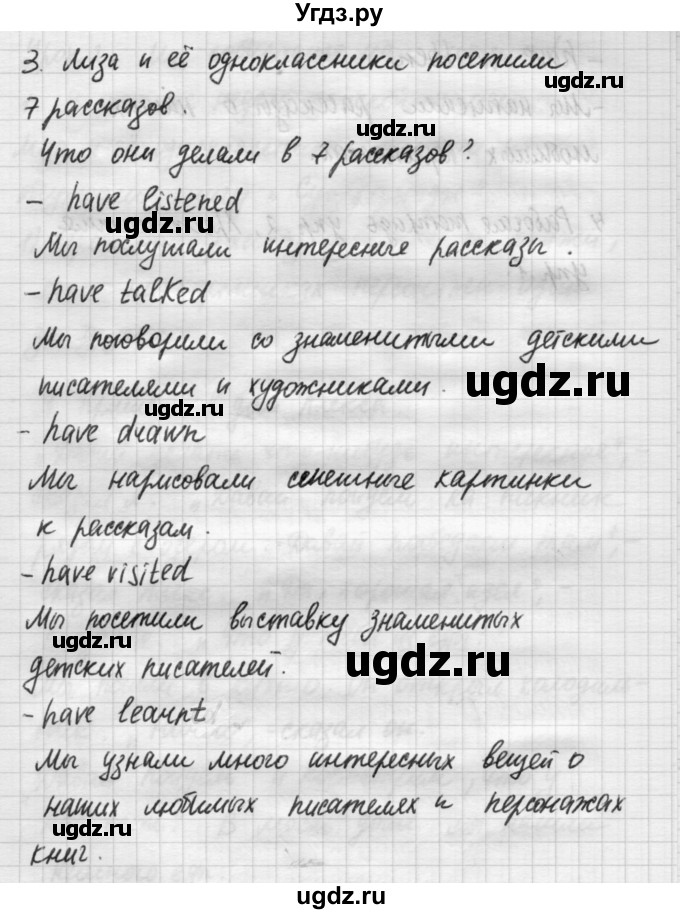 Угдз.ру
3. Лиза и её одноклассники посетили
7 рассказов.
ugdz.ru
Что они делали в 7 рассказов?
- have listened
ugdz.ru
Мы послушали интересные рассказы.
ugdz.ru
- have talked
Мы поговорили со знаменитыми детскими
писателями и художниками.
ugdz.ru
ugdz.ru
- have drawn
Мы нарисовали смешные картинки
к рассказам.
- have visited
Мы посетили выставку знаменитых
ugdz.ru
детских писателей.
ugdz.ru
- have learnt
Мы узнали много интересных вещей о
наших любимых писателях и персонажах
ugdz.ru
книг.
ugdz.ru